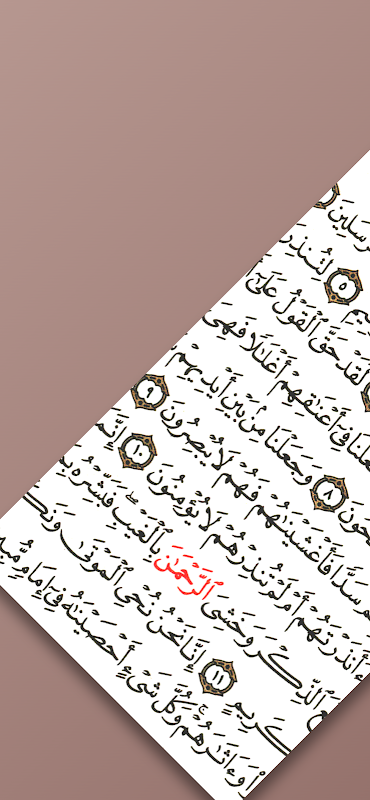 رسلين
يم ٥ لتنذر
لقد حق القول على
علنا فى أعنقهم أغللا فهى
محون ٨ وجعلنا من بين أيديهم
سدا فأغشينهم فهم لا يبصرون ٩
ءأنذرتهم أم لم تنذرهم لا يؤمنون ١٠ إنم
ع ٱلذكر وخشى ٱلرحمن بٱلغيب فبشره بم
كريم ١١ إنا نحن نحى ٱلموتى ونك
ا وءاثرهم وكل شىء أحصينه فى إمام مب